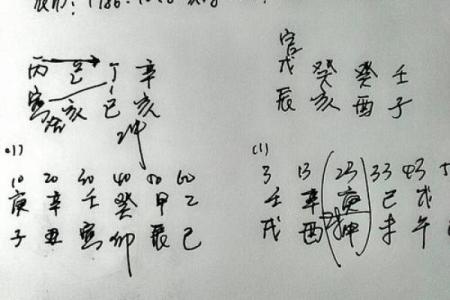 丙 己 丁 辛
寅 亥 巳 亥
官
戊 癸 癸 壬
辰 亥 酉 子
10 20 30 40 50 60
庚 辛 壬 癸 甲 乙
子 丑 寅 卯 辰 巳
(1)
3 13 (23) 33 43
壬 辛 庚 己 戊
戌 酉 申 未 午